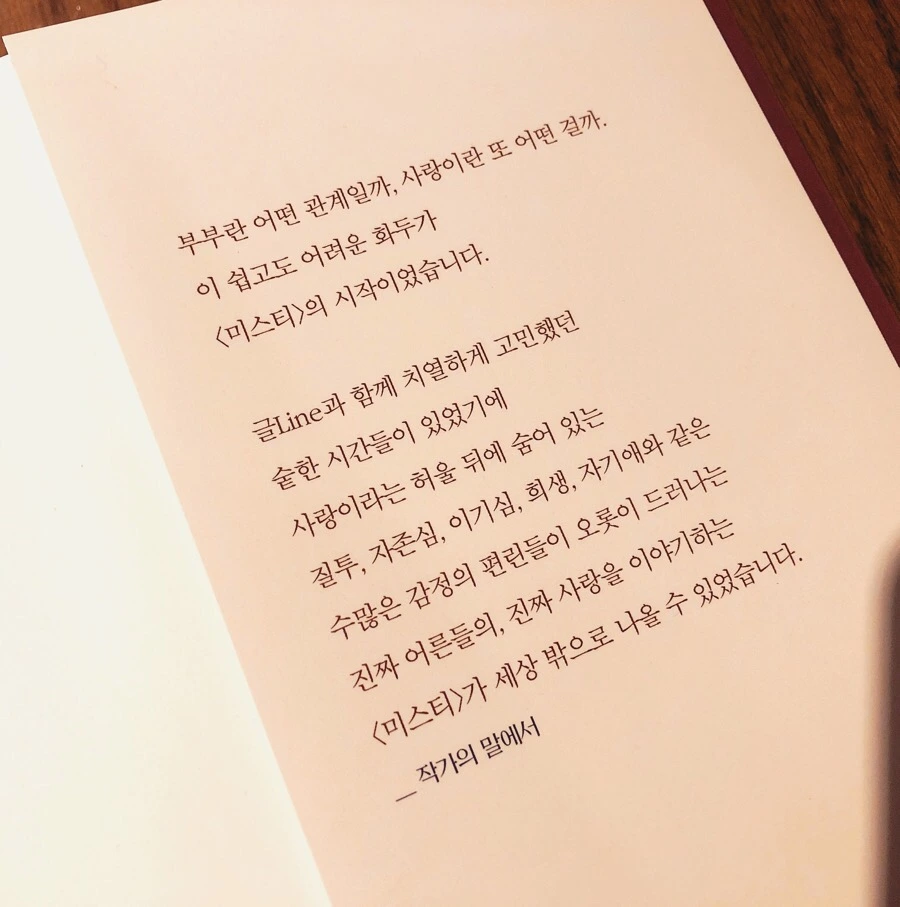 부부란 어떤 관계일까, 사랑이란 또 어떤 걸까.
이 쉽고도 어려운 화두가
〈미스티〉의 시작이었습니다.
글Line과 함께 치열하게 고민했던
숱한 시간들이 있었기에
사랑이라는 허울 뒤에 숨어 있는
질투, 자존심, 이기심, 희생, 자기애와 같은
수많은 감정의 편린들이 오롯이 드러나는
진짜 어른들의, 진짜 사랑을 이야기하는
〈미스티〉가 세상 밖으로 나올 수 있었습니다.
_작가의 말에서